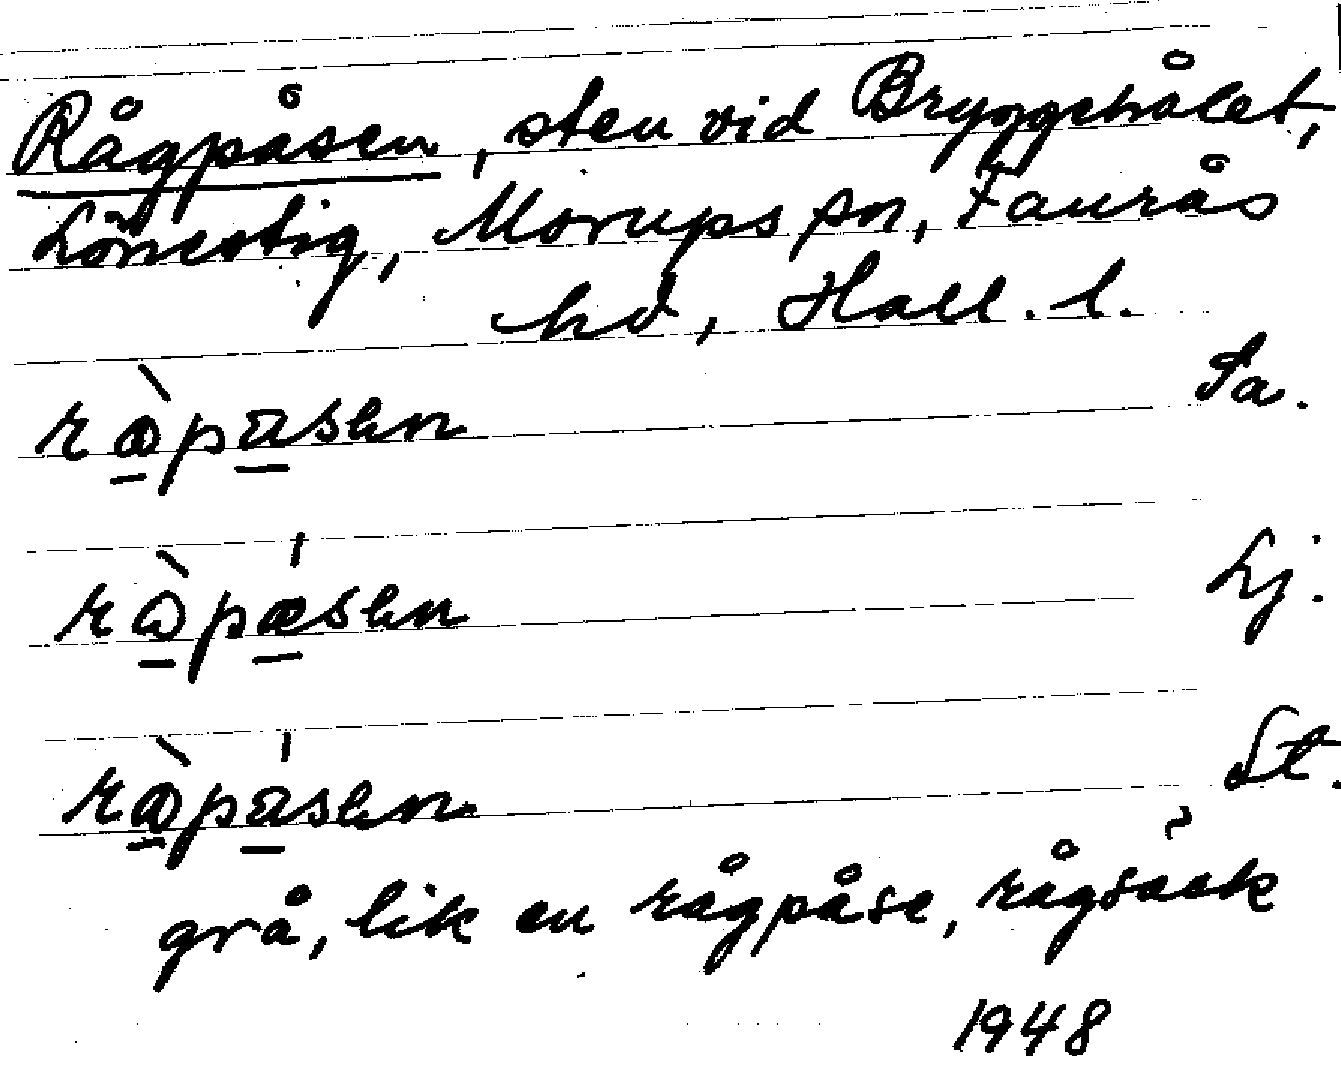 Rågpåsen, sten vid Bryggehålet,
Lönestig, Morups sn, Faurås
hd, Hall. l.
Sa.
Lj.
St.
grå, lik en rågpåse, rågsäck
1948